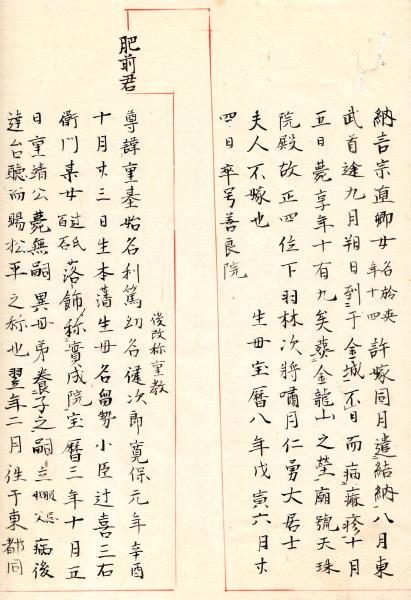 納吉宗直卿女名於央年十四許嫁同月遣結納八月東
武首途九月朔日到于金城不日而病痲疹十月
五日薨享年十有九矣葬金龍山之塋廟號天珠
院殿故正四位下羽林次將嘯月仁勇大居士
夫人不嫁也 生母宝曆八年戊寅六月廿
四日卒号善良院
肥前君
後改称重教
尊諱重基始名利篤幼名健次郎寛保元年辛酉
十月廿三日生本藩生母名留勢小臣辻喜三右
衛門某女落飾称實成院宝曆三年十月五
日重靖公薨無嗣異母弟養子之嗣立病後
達台聽而賜松平之称也翌年二月徃于東都同